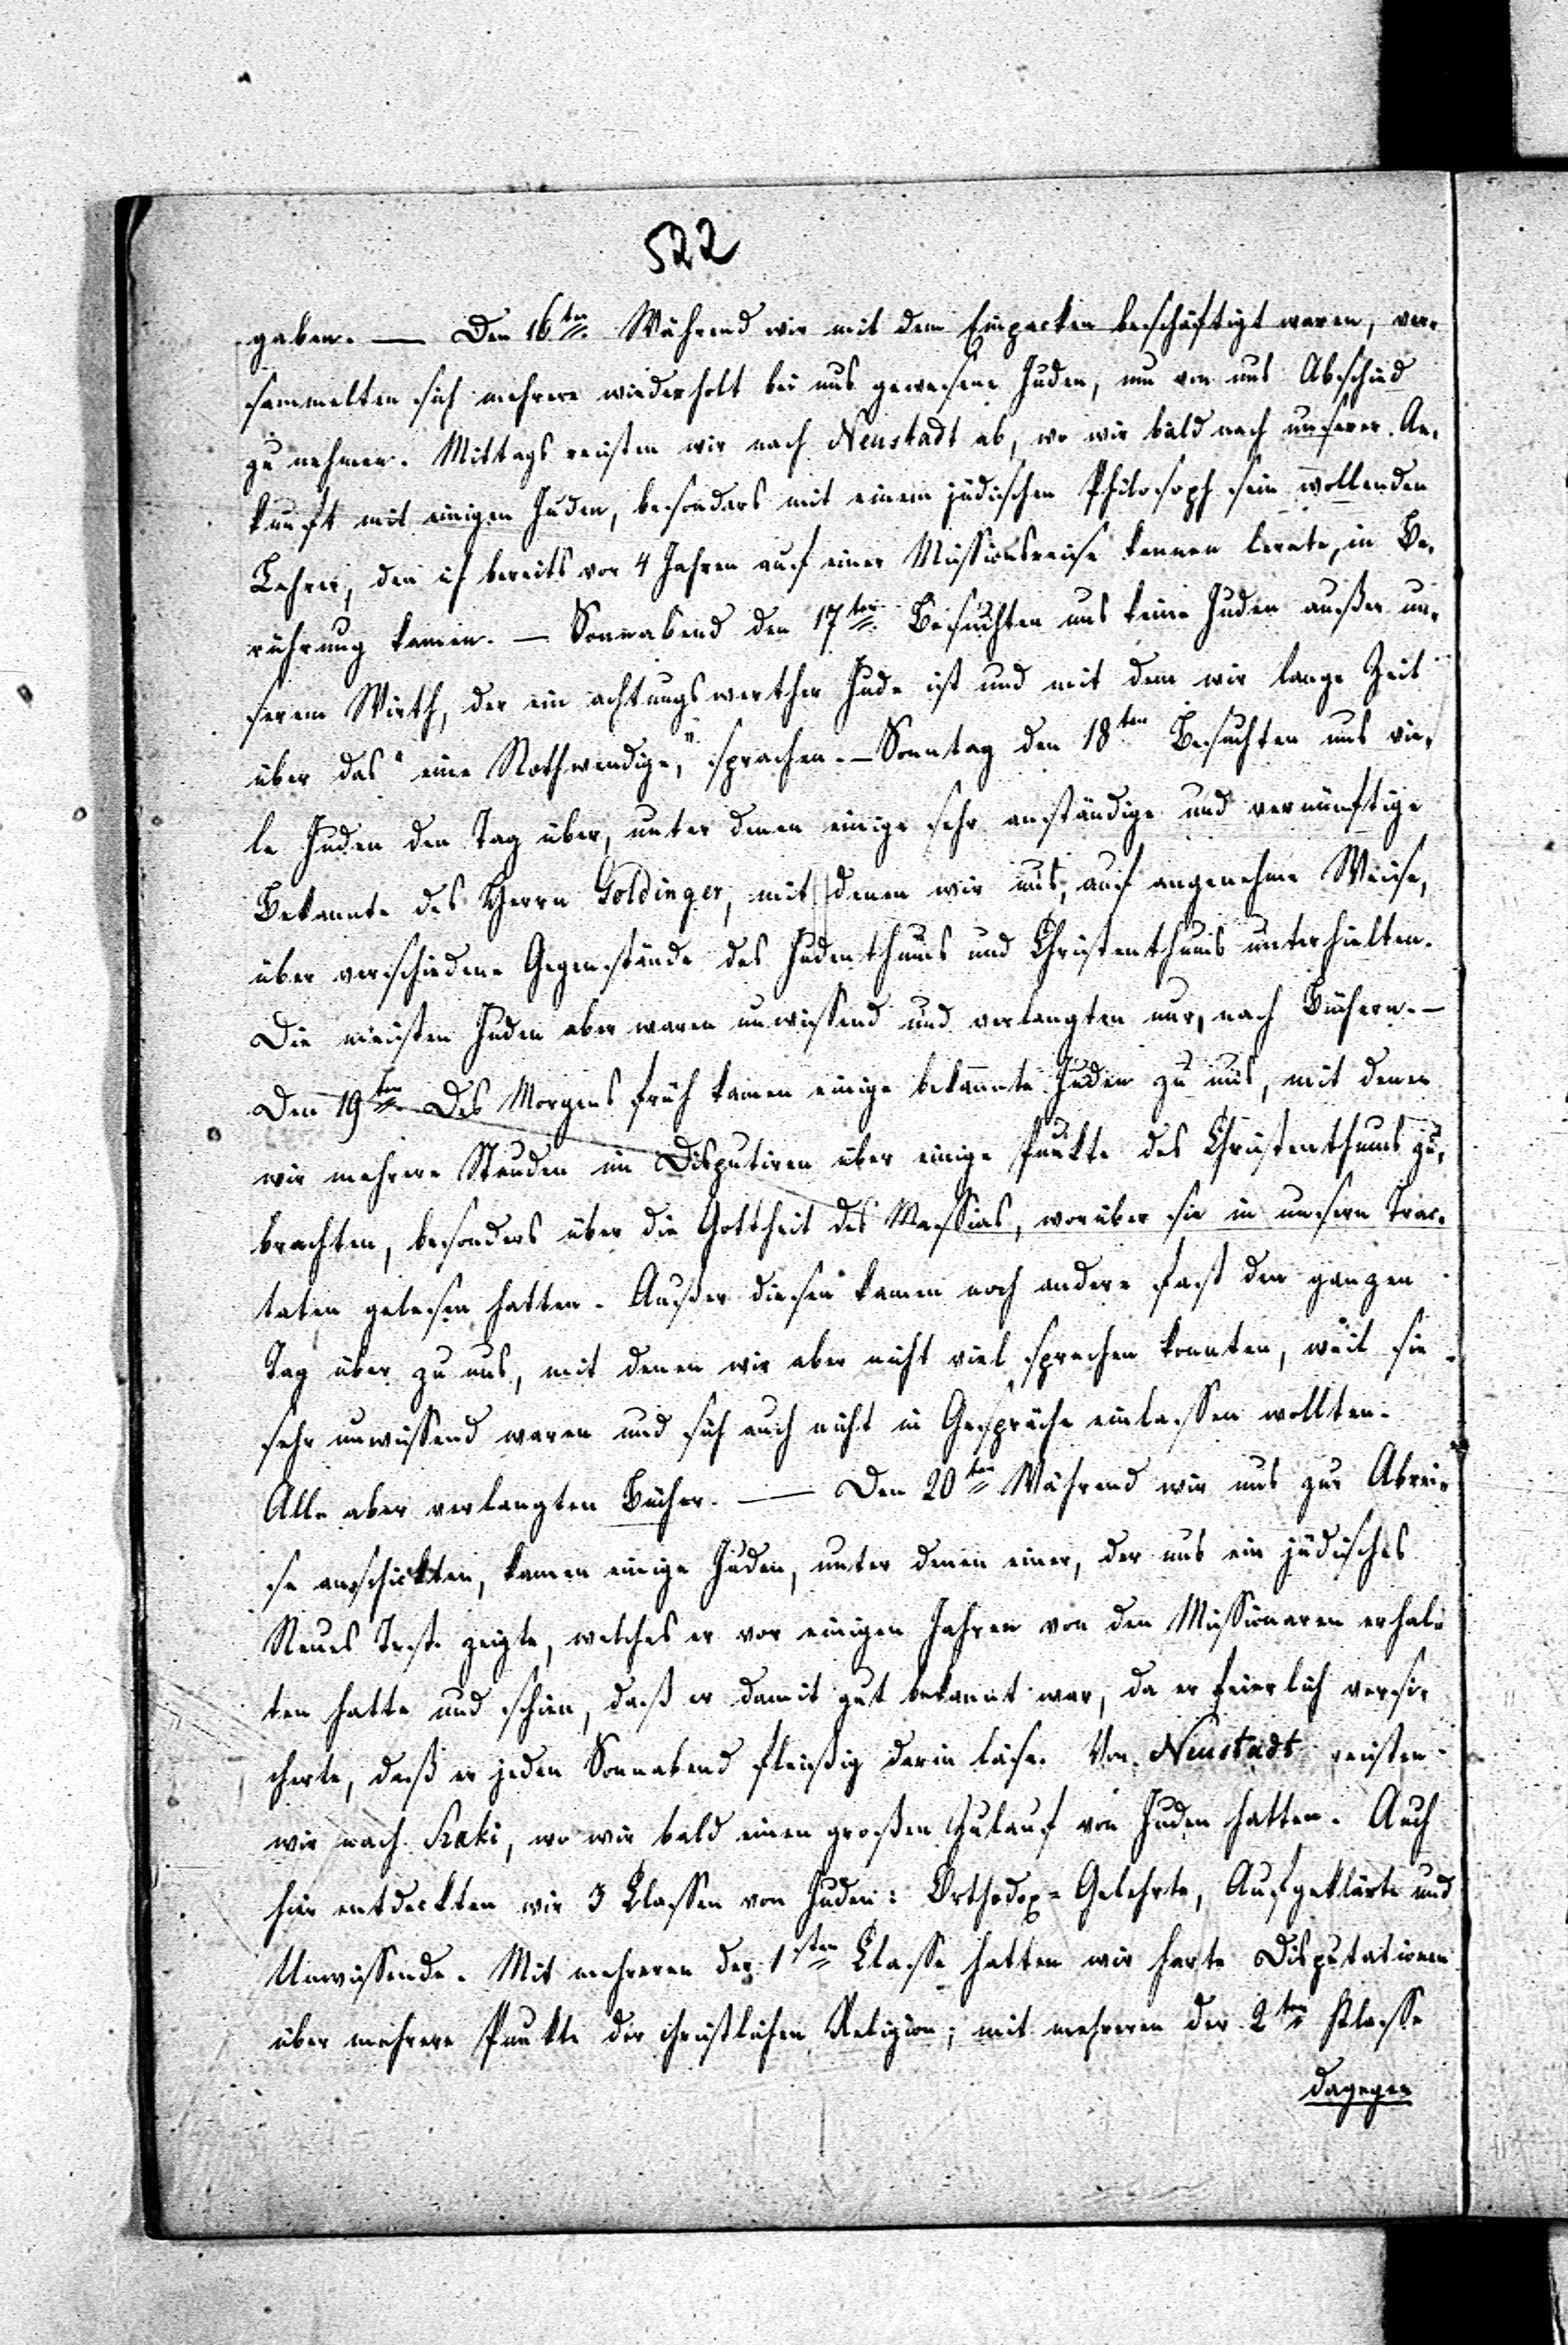 522
gaben. — Den 16ten Während wir mit dem Einpacken beschäftigt waren, ver-
sammelten sich mehrere wiederholt bei uns gewesene Juden, um von uns Abschied
zu nehmen. Mittags reisten wir nach Neustadt ab, wo wir bald nach unserer An-
kunft mit einigen Juden, besonders mit einem jüdischen Philosoph sein wollenden
Lehrer, den ich bereits vor 4 Jahren auf einer Missionsreise kennen lernte, in Be-
rührung kamen. — Sonnabend den 17ten Besuchten uns keine Juden außer un-
serem Wirth, der ein achtungswerther Jude ist und mit dem wir lange Zeit
über das "eine Nothwendige," sprachen. — Sonntag den 18ten Besuchten uns vie-
le Juden den Tag über, unter denen einige sehr anständige und vernünftige
Bekannte des Herrn Goldinger, mit denen wir uns, auf angenehme Weise,
über verschiedene Gegenstände des Judenthums und Christenthums unterhielten.
Die meisten Juden aber waren unwissend und verlangten nur, nach Büchern. —
Den 19ten Des Morgens früh kamen einige bekannte Juden zu uns, mit denen
wir mehrere Stunden im Disputiren über einige Punkte des Christenthums zu-
brachten, besonders über die Gottheit des Messias, worüber sie in unsern Trac-
taten gelesen hatten. Außer diesen kamen noch andere fast den ganzen
Tag über zu uns, mit denen wir aber nicht viel sprechen konnten, weil sie
sehr unwissend waren und sich auch nicht in Gespräche einlassen wollten.
Alle aber verlangten Bücher. — Den 20ten Während wir uns zur Abrei-
se anschickten, kamen einige Juden, unter denen einer, der uns ein jüdisches
Neues Test. zeigte, welches er vor einigen Jahren von den Missionaren erhal-
ten hatte und schien, daß er damit gut bekannt war, da er feierlich versi-
cherte, daß er jeden Sonnabend fleißig darin läse. Von Neustadt reisten
wir nach Szaki, wo wir bald einen großen Zulauf von Juden hatten. Auch
hier entdeckten wir 3 Classen von Juden: Orthodox-Gelehrte, Aufgeklärte und
Unwissende. Mit mehreren der 1sten Classe hatten wir harte Disputationen
über mehrere Punkte der christlichen Religion; mit mehreren der 2ten Klasse
dagegen